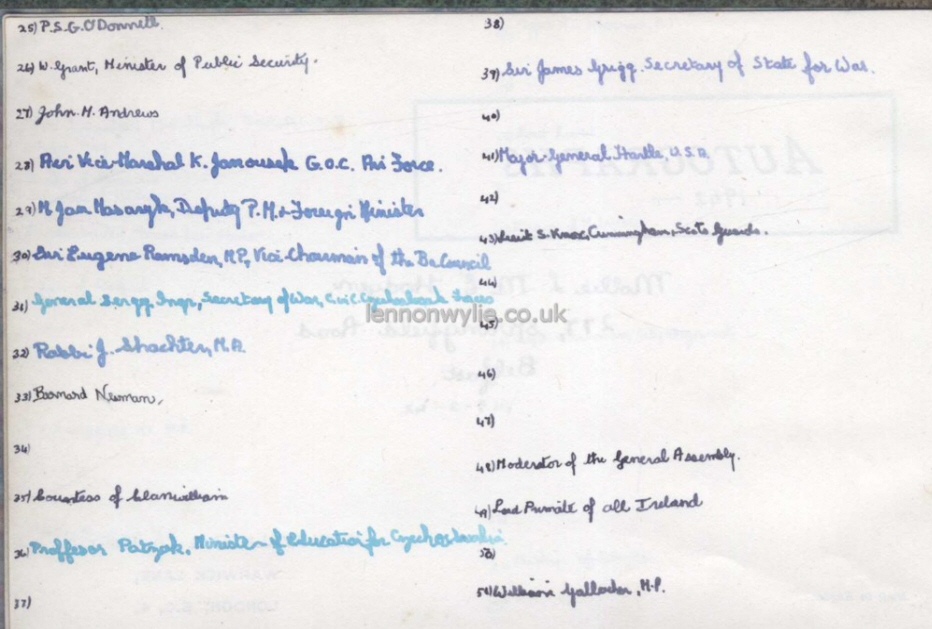 25) P.S.G. O'Donnell.
26) W. Grant, Minister of Public Security.
27) John. M. Andrews
28) Air Vice-Marshal K. Janousek G.O.C. Air Force.
29) M Jan Masaryk, Deputy P.M. & Foreign Minister
30) Sir Eugene Ramsden, M.P., Vice Chairman of the Br. Council
31) General Sergej Ingr, Secretary of War, Forces
32) Rabbi J. Shachter, M.A.
33) Bernard Newman,
34)
35) Countess of Clanwilliam
36) Proffesor Patzak, Minister of Education for Czechoslovakia
37)
38)
39) Sir James Grigg. Secretary of State for War.
40)
41) Major-General Hartle, U.S.A.
42)
43) Lieut S. Knox, Cunningham, Scots Guards.
44)
45)
46)
47)
48) Moderator of the General Assembly.
49) Lord Primate of all Ireland
50)
51) William Gallacher, M.P.
lennonwylie.co.uk
AUTOGRAPHS
1942
Belfast